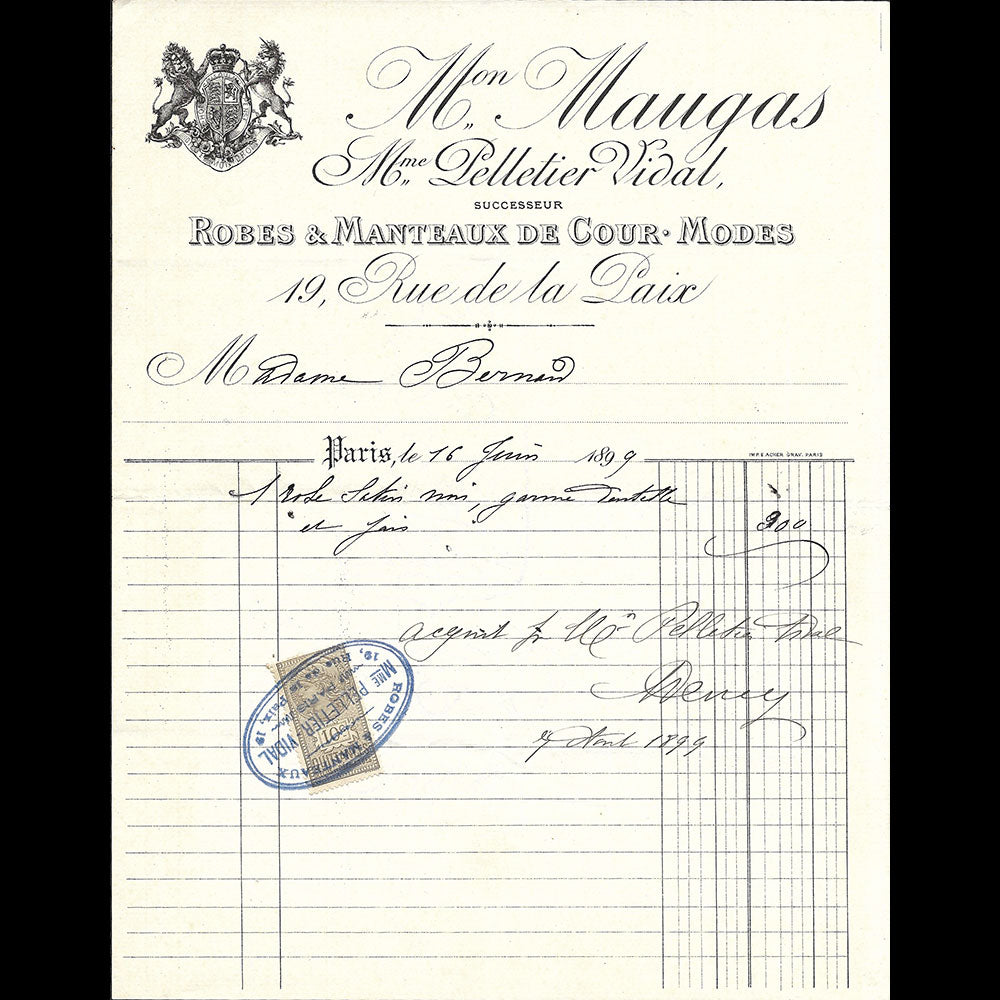 Mon Maugas
Mme Pelletier Vidal,
SUCCESSEUR
ROBES & MANTEAUX DE COUR · MODES
19, Rue de la Paix
Madame Bernard
Paris, le 16 Juin 1899
IMP. E. ACKER GRAV. PARIS
1 robe Satin noir, garnie dentelle
et jais 900
acquit pr Mon Pelletier Vidal
Août 1899
ROBES & MANTEAUX
MME PELLETIER VIDAL
19, Rue de la Paix, 19